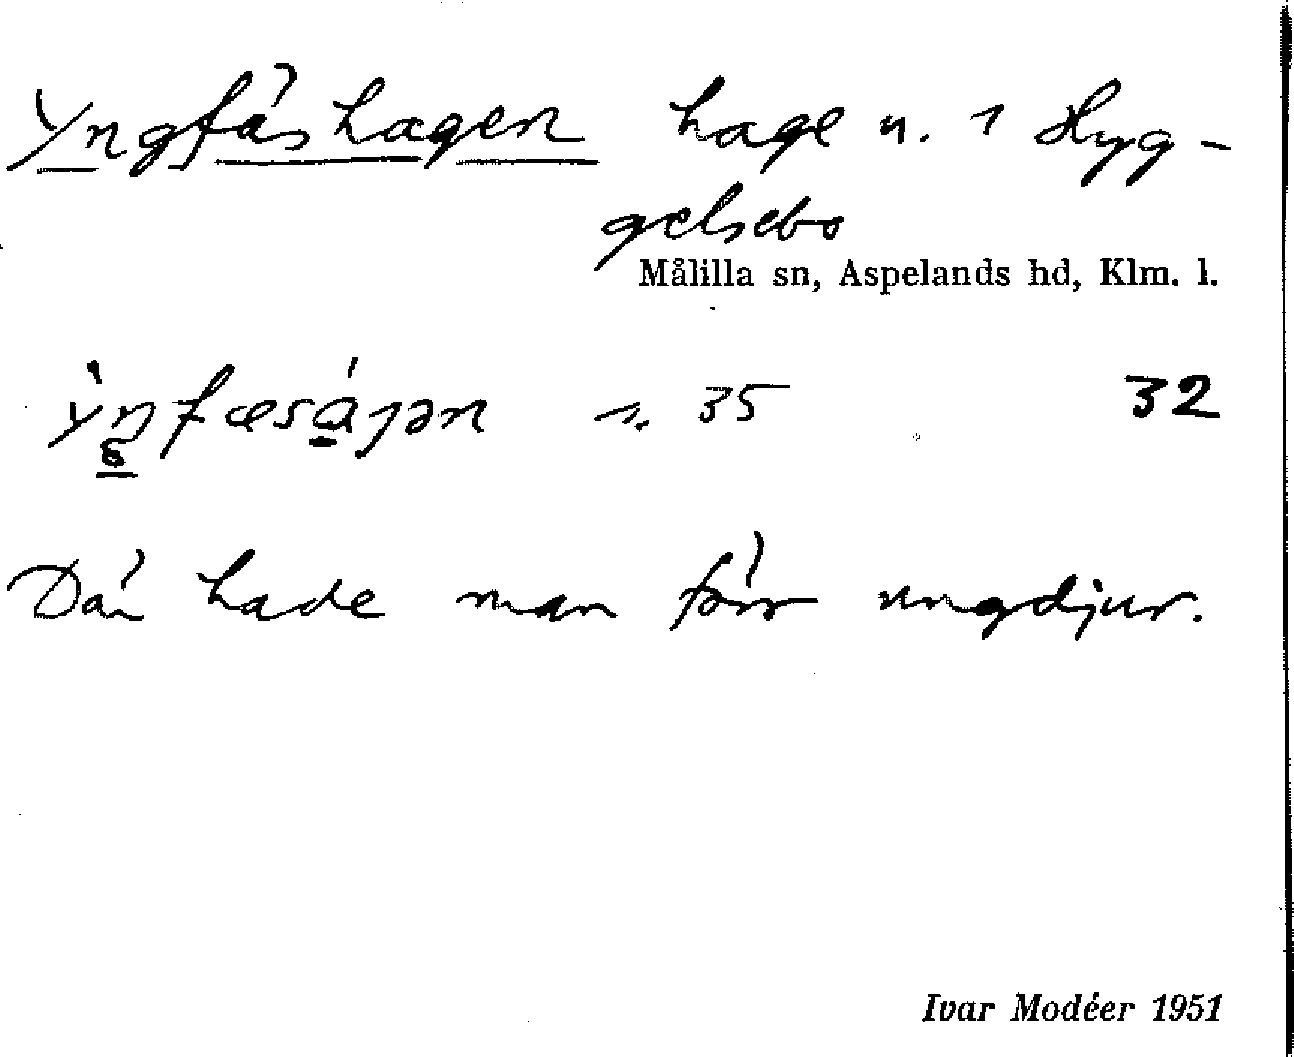 Yngfäshagen hage n. 1 Hyg-
gelsebo
Målilla sn, Aspelands hd, Klm. l.
n. 35 32
Där hade man förr ungdjur.
Ivar Modéer 1951